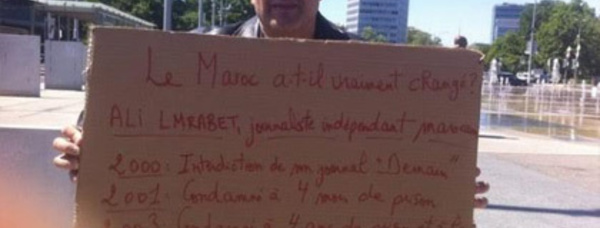 Le Maroc a-t-il vraiment changé?
ALI LMRABET, journaliste indépendant marocain
2000: Interdiction de mon journal "Demain"
2001: Condamné à 4 mois de prison
2003: Condamné à 4 ans de